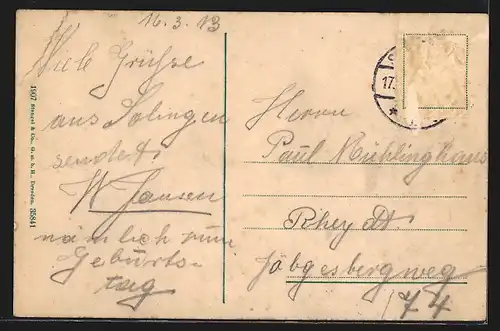 16.3.13
Viele Grüsse
aus Solingen
sendet
W Jansen
nämlich zum
Geburts-
tag
1907 Stengel & Co., G. m. b. H., Dresden. 35841
S
17.
Herrn
Paul Mühlinghaus
Rheydt
74